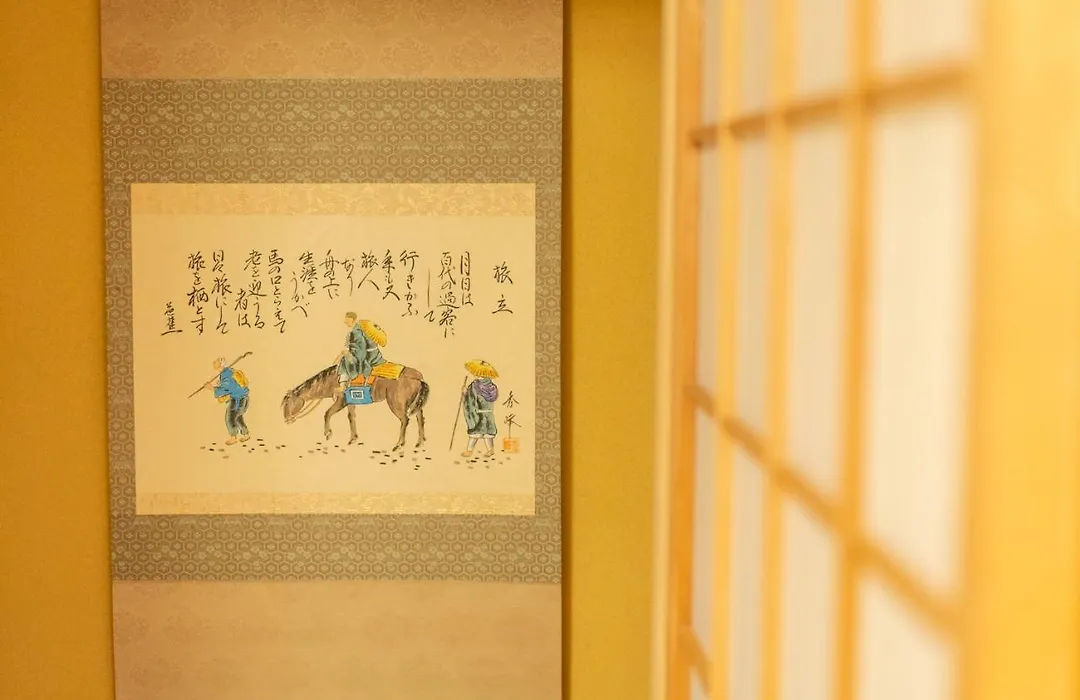 旅立
月日は
百代の過客に
して
行きかふ
年も又
旅人
なり
舟の上に
生涯を
うかべ
馬の口とらえて
老を迎うる
者は
日々旅にして
旅を栖とす
芭蕉